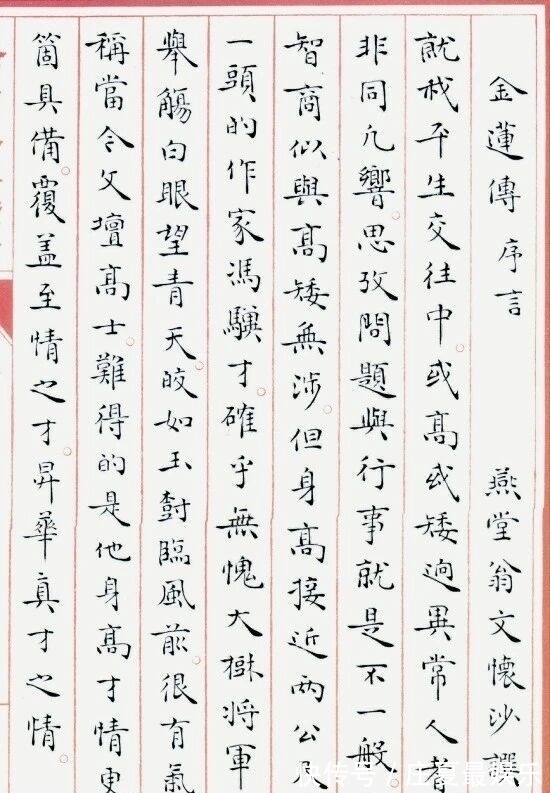 金蓮傳 序言 燕堂翁文懷沙譔
就我平生交往中或高或矮迥異常人者
非同凡響。思攷問題與行事就是不一般。
智商似與高矮無涉。但身高接近兩公尺
一頭的作家馮驥才。確乎無愧大樹將軍
舉觴白眼望青天。皎如玉樹臨風前。很有氣
稱當今文壇高士。難得的是他身高才情更
箇具備。覆盖至情之才。昇華真才之情。
快传号/庄夏最娱乐